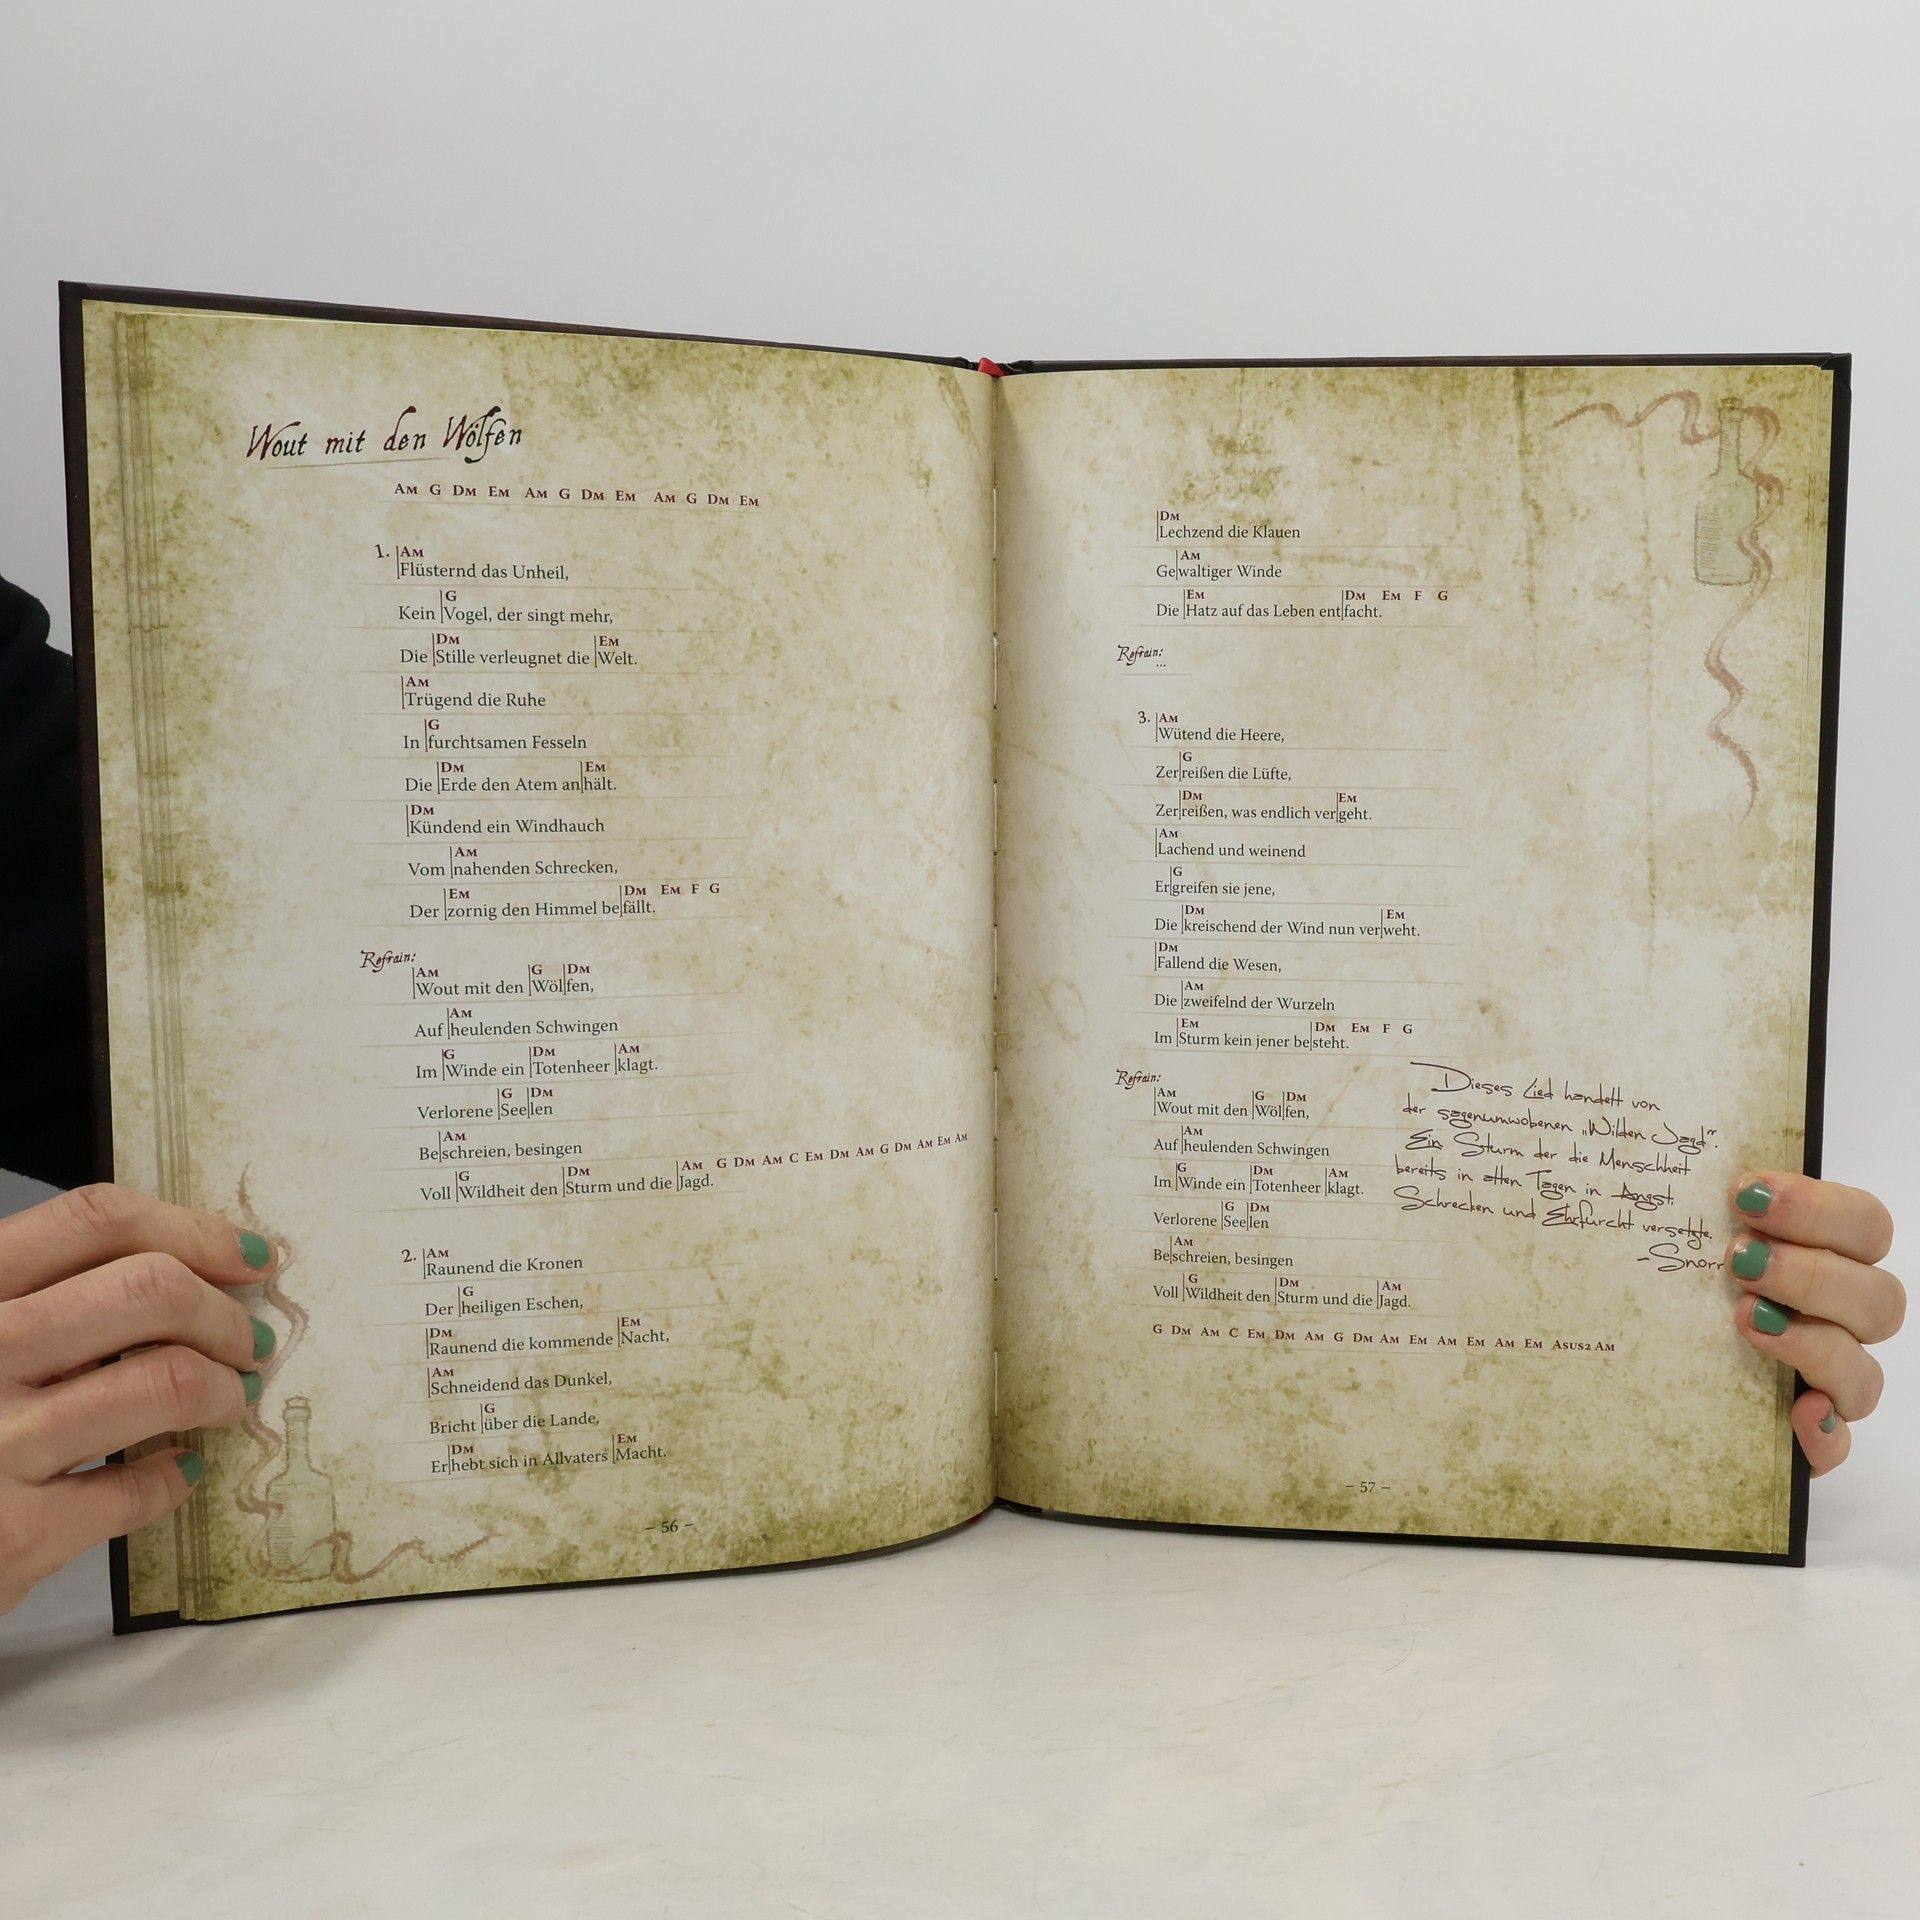 Wout mit den Wölfen
Am G Dm Em Am G Dm Em Am G Dm Em
1. Am
Flüsternd das Unheil,
G
Kein Vogel, der singt mehr,
Dm Em
Die Stille verleugnet die Welt.
Am
Trügend die Ruhe
G
In furchtsamen Fesseln
Dm Em
Die Erde den Atem anhält.
Dm
Kündend ein Windhauch
Am
Vom nahenden Schrecken,
Em Dm Em F G
Der zornig den Himmel befällt.
Refrain:
Am G Dm
Wout mit den Wölfen,
Am
Auf heulenden Schwingen
G Dm Am
Im Winde ein Totenheer klagt.
G Dm
Verlorene Seelen
Am
Beschreien, besingen
G Dm Am G Dm Am C Em Dm Am G Dm Am Em Am
Voll Wildheit den Sturm und die Jagd.
2. Am
Raunend die Kronen
G
Der heiligen Eschen,
Dm Em
Raunend die kommende Nacht,
Am
Schneidend das Dunkel,
G
Bricht über die Lande,
Dm Em
Erhebt sich in Allvaters Macht.
– 56 –
Dm
Lechzend die Klauen
Am
Gewaltiger Winde
Em Dm Em F G
Die Hatz auf das Leben entfacht.
Refrain:
...
3. Am
Wütend die Heere,
G
Zerreißen die Lüfte,
Dm Em
Zerreißen, was endlich vergeht.
Am
Lachend und weinend
G
Ergreifen sie jene,
Dm Em
Die kreischend der Wind nun verweht.
Dm
Fallend die Wesen,
Am
Die zweifelnd der Wurzeln
Em Dm Em F G
Im Sturm kein jener besteht.
Refrain:
Am G Dm
Wout mit den Wölfen,
Am
Auf heulenden Schwingen
G Dm Am
Im Winde ein Totenheer klagt.
G Dm
Verlorene Seelen
Am
Beschreien, besingen
G Dm Am
Voll Wildheit den Sturm und die Jagd.
G Dm Am C Em Dm Am G Dm Am Em Am Em Am Em Asus2 Am
Dieses Lied handelt von
der sagenumwobenen „Wilden Jagd".
Ein Sturm der die Menschheit
bereits in alten Tagen in Angst,
Schrecken und Ehrfurcht versetzte.
- Snorr
– 57 –